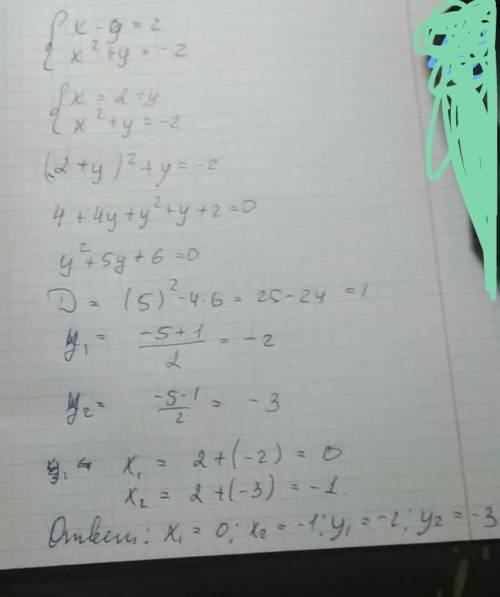 { x - y = 2
x² + y = -2
{ x = 2 + y
x² + y = -2
(2 + y)² + y = -2
4 + 4y + y² + y + 2 = 0
y² + 5y + 6 = 0
D = (5)² - 4·6 = 25 - 24 = 1
y₁ = (-5+1)/2 = -2
y₂ = (-5-1)/2 = -3
x₁ = 2 + (-2) = 0
x₂ = 2 + (-3) = -1.
Ответ: x₁ = 0; x₂ = -1; y₁ = -2; y₂ = -3